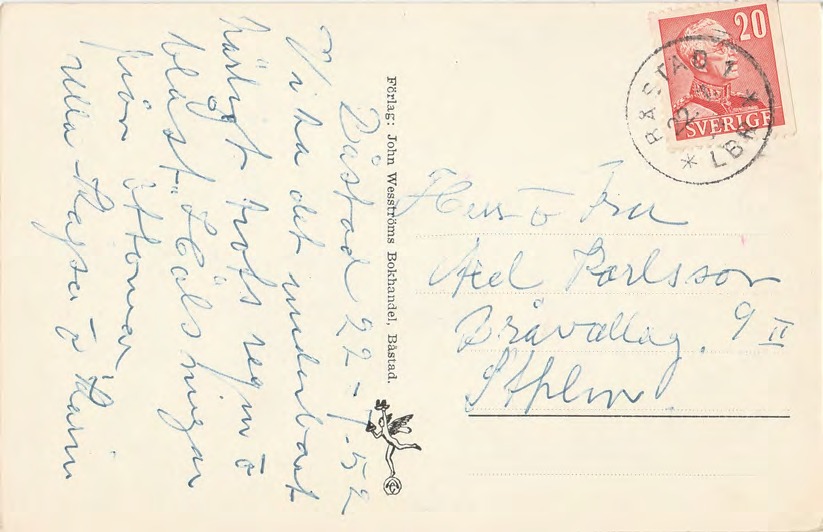 Båstad 22-7-52
Vi ha det underbart
härligt trots regn o
blåst. Hälsningar
från Ottomar,
Ulla Kajsa o Karin
Förlag: John Wesströms Bokhandel, Båstad.
20
SVERIGE
BÅSTAD 1
22
LBR
Herr o Fru
Axel Karlsson
Bråvallag. 9 II
Sthlm.